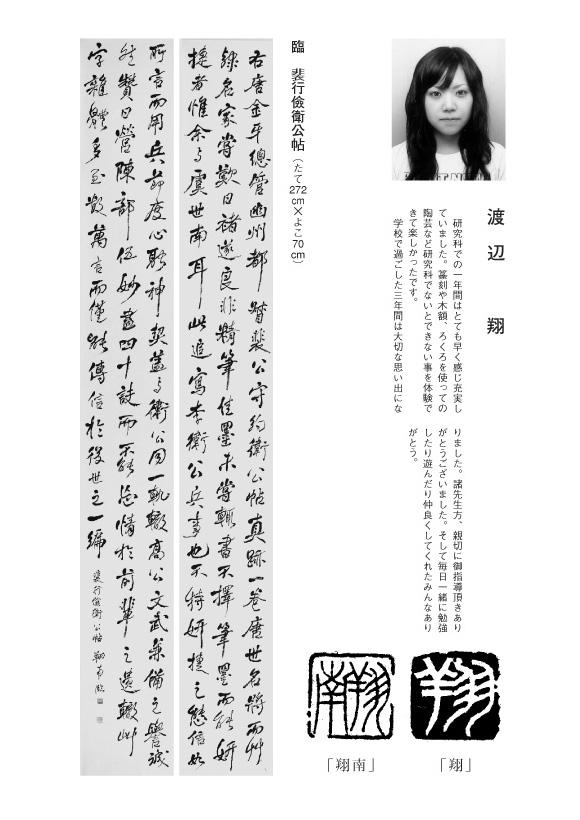 渡辺 翔
研究科での一年間はとても早く感じ充実し
ていました。篆刻や木額、ろくろを使っての
陶芸など研究科でないとできない事を体験で
きて楽しかったです。
学校で過ごした三年間は大切な思い出にな
りました。諸先生方、親切に御指導頂きあり
がとうございました。そして毎日一緒に勉強
したり遊んだり仲良くしてくれたみんなあり
がとう。
翔
「翔」
翔南
「翔南」
臨 裴行儉衛公帖（たて272cm×よこ70cm）
右唐金牙總管幽州都督裴公守約衛公帖真跡一巻唐世名將而艸
隷名家嘗歎曰褚遂良非精筆佳墨未嘗輒書不擇筆墨而能妍
捷者惟余与虞世南耳此追寫李衛公兵事也不特妍捷之態信如
所言而用兵節度心聆神契蓋与衛公同一軌轍高公文武兼備之譽誠
然贊曰營陳部伍妙盡四十訣而不能忘情於前輩之遺轍艸
字雜體多至數萬言而僅能傳信於後世之一編
裴行儉衛公帖 翔南臨